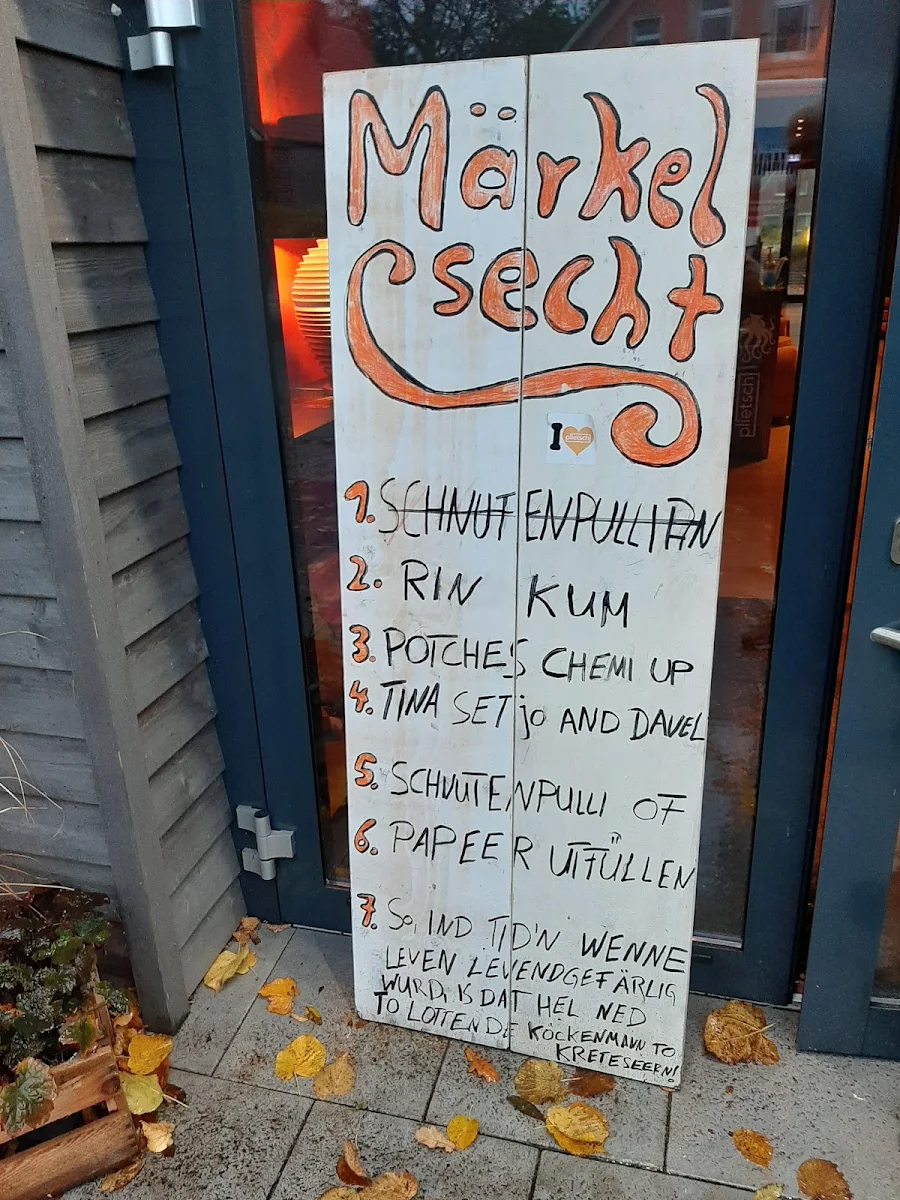 Märkel
secht
I plietsch
plietsch
1. SCHNUTENPULLI AN
2. RIN KUM
3. POTCHES CHEMI UP
4. TINA SETjo AND DAVEL
5. SCHNUTENPULLI OF
6. PAPEER UTFÜLLEN
7. So, IND TID'N WENNE
LEVEN LEVENDGEFÄRLIG
WURD, IS DAT HEL NED
TO LOTTEN DE KÖCKENMANN TO
KRETESEERN!